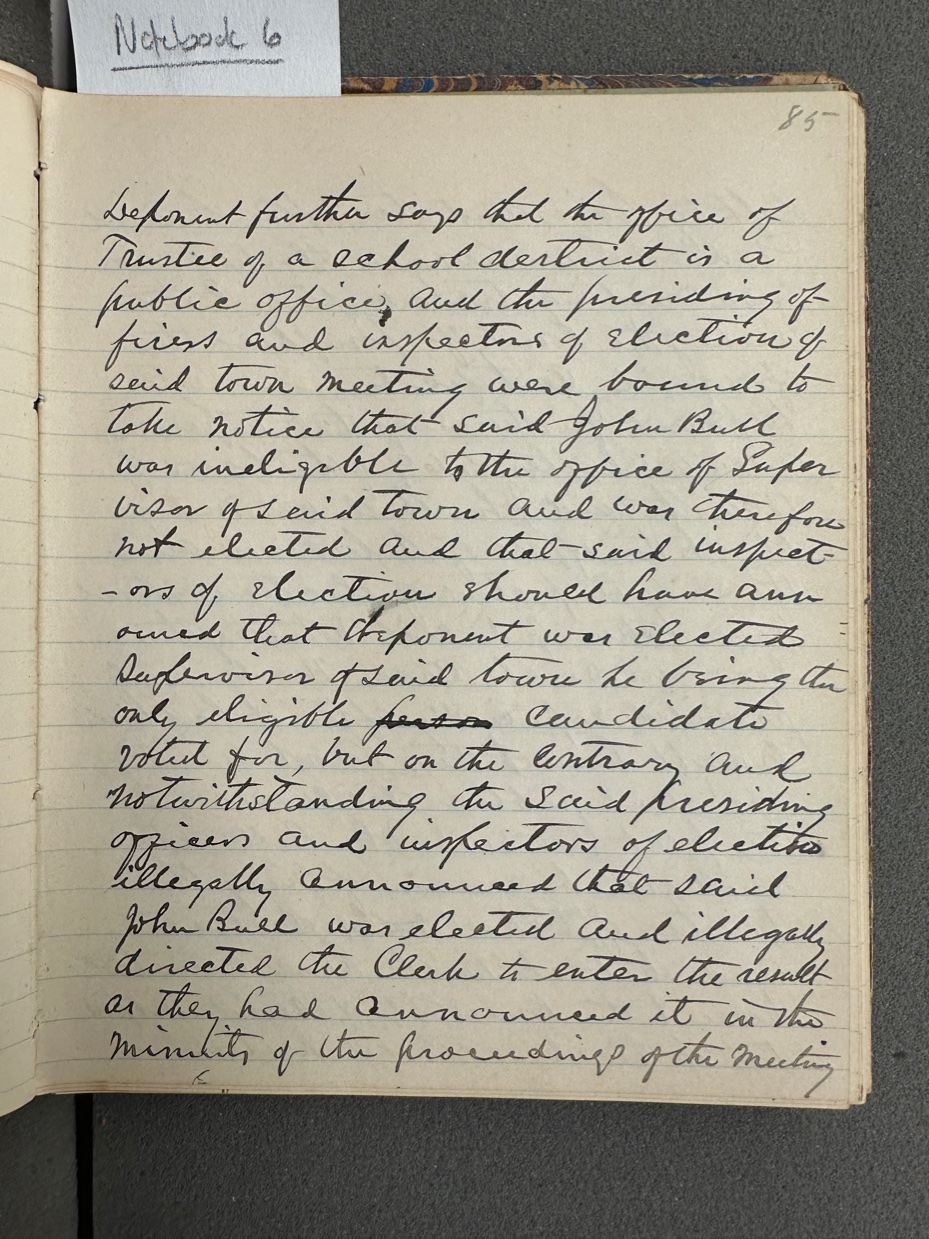 Notebook 6
85
Deponent further says that the office of
Trustee of a school destrict is a
public office, and the presiding of-
ficers and inspectors of Election of
said town meeting were bound to
take notice that said John Bull
was ineligible to the office of Super
visor of said town and was therefore
not elected and that said inspect-
-ors of Election should have ann
ouned that deponent was Elected
Supervisor of said town he being the
only eligible person candidate
voted for, but on the contrary and
notwithstanding the said presiding
officers and inspectors of election
illegally announced that said
John Bull was elected and illegally
directed the Clerk to enter the result
as they had announced it in the
minuits of the proceedings of the meeting